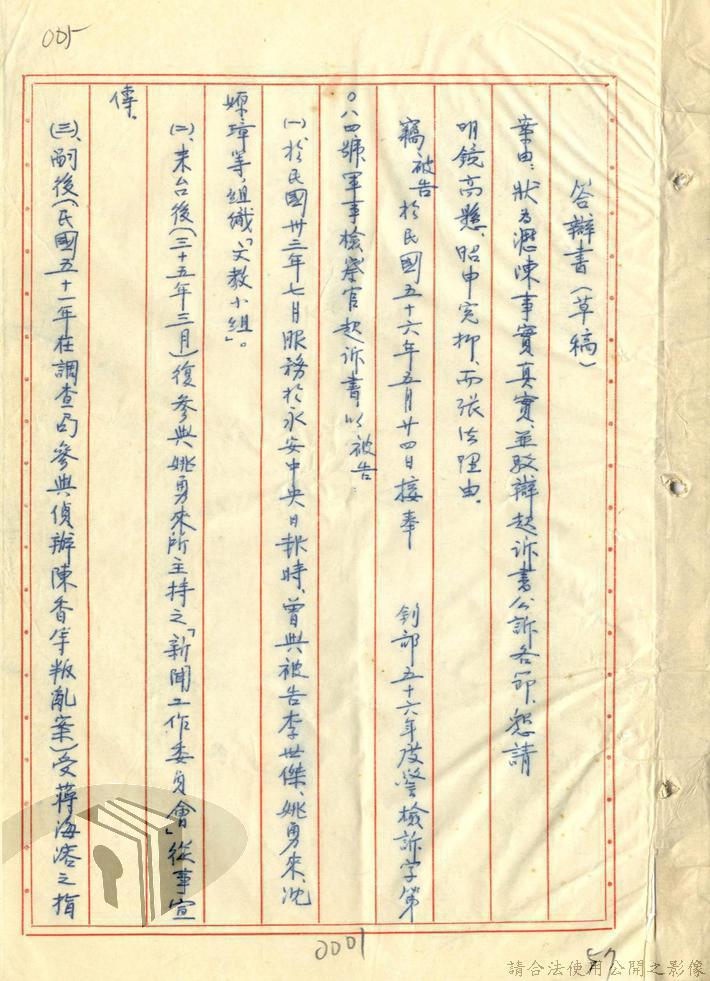 005
答辯書(草稿)
案由:狀為瀝陳事實真實、並駁辯起訴書公訴各節、懇請
明鏡高懸、昭申冤抑、而張法理由、
竊被告於民國五十六年五月廿四日接奉 鈞部五十六年度警檢訴字第
〇八四號軍事檢察官起訴書以被告:
(一)、於民國卅三年七月服務於永安中央日報時、曾與被告李世傑、姚勇來、沈
嫄璋等、組織「文教小組」。
(二)、來台後(三十五年三月)復參與姚勇來所主持之「新聞工作委員會」從事宣
傳、
(三)、嗣後(民國五十一年在調查局參與偵辦陳香等叛亂案)受蔣海溶之指
0001
57
請合法使用公開之影像